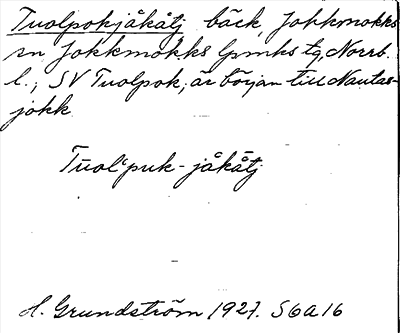 Tuolpokjåkåtj bäck, Jokkmokks
sn Jokkmokks lpmks tg, Norrb.
l.; SV Tuolpok; är början till Nautas-
jokk
Tūolˈpuk-jåkåtj
H. Grundström 1927. S6a16